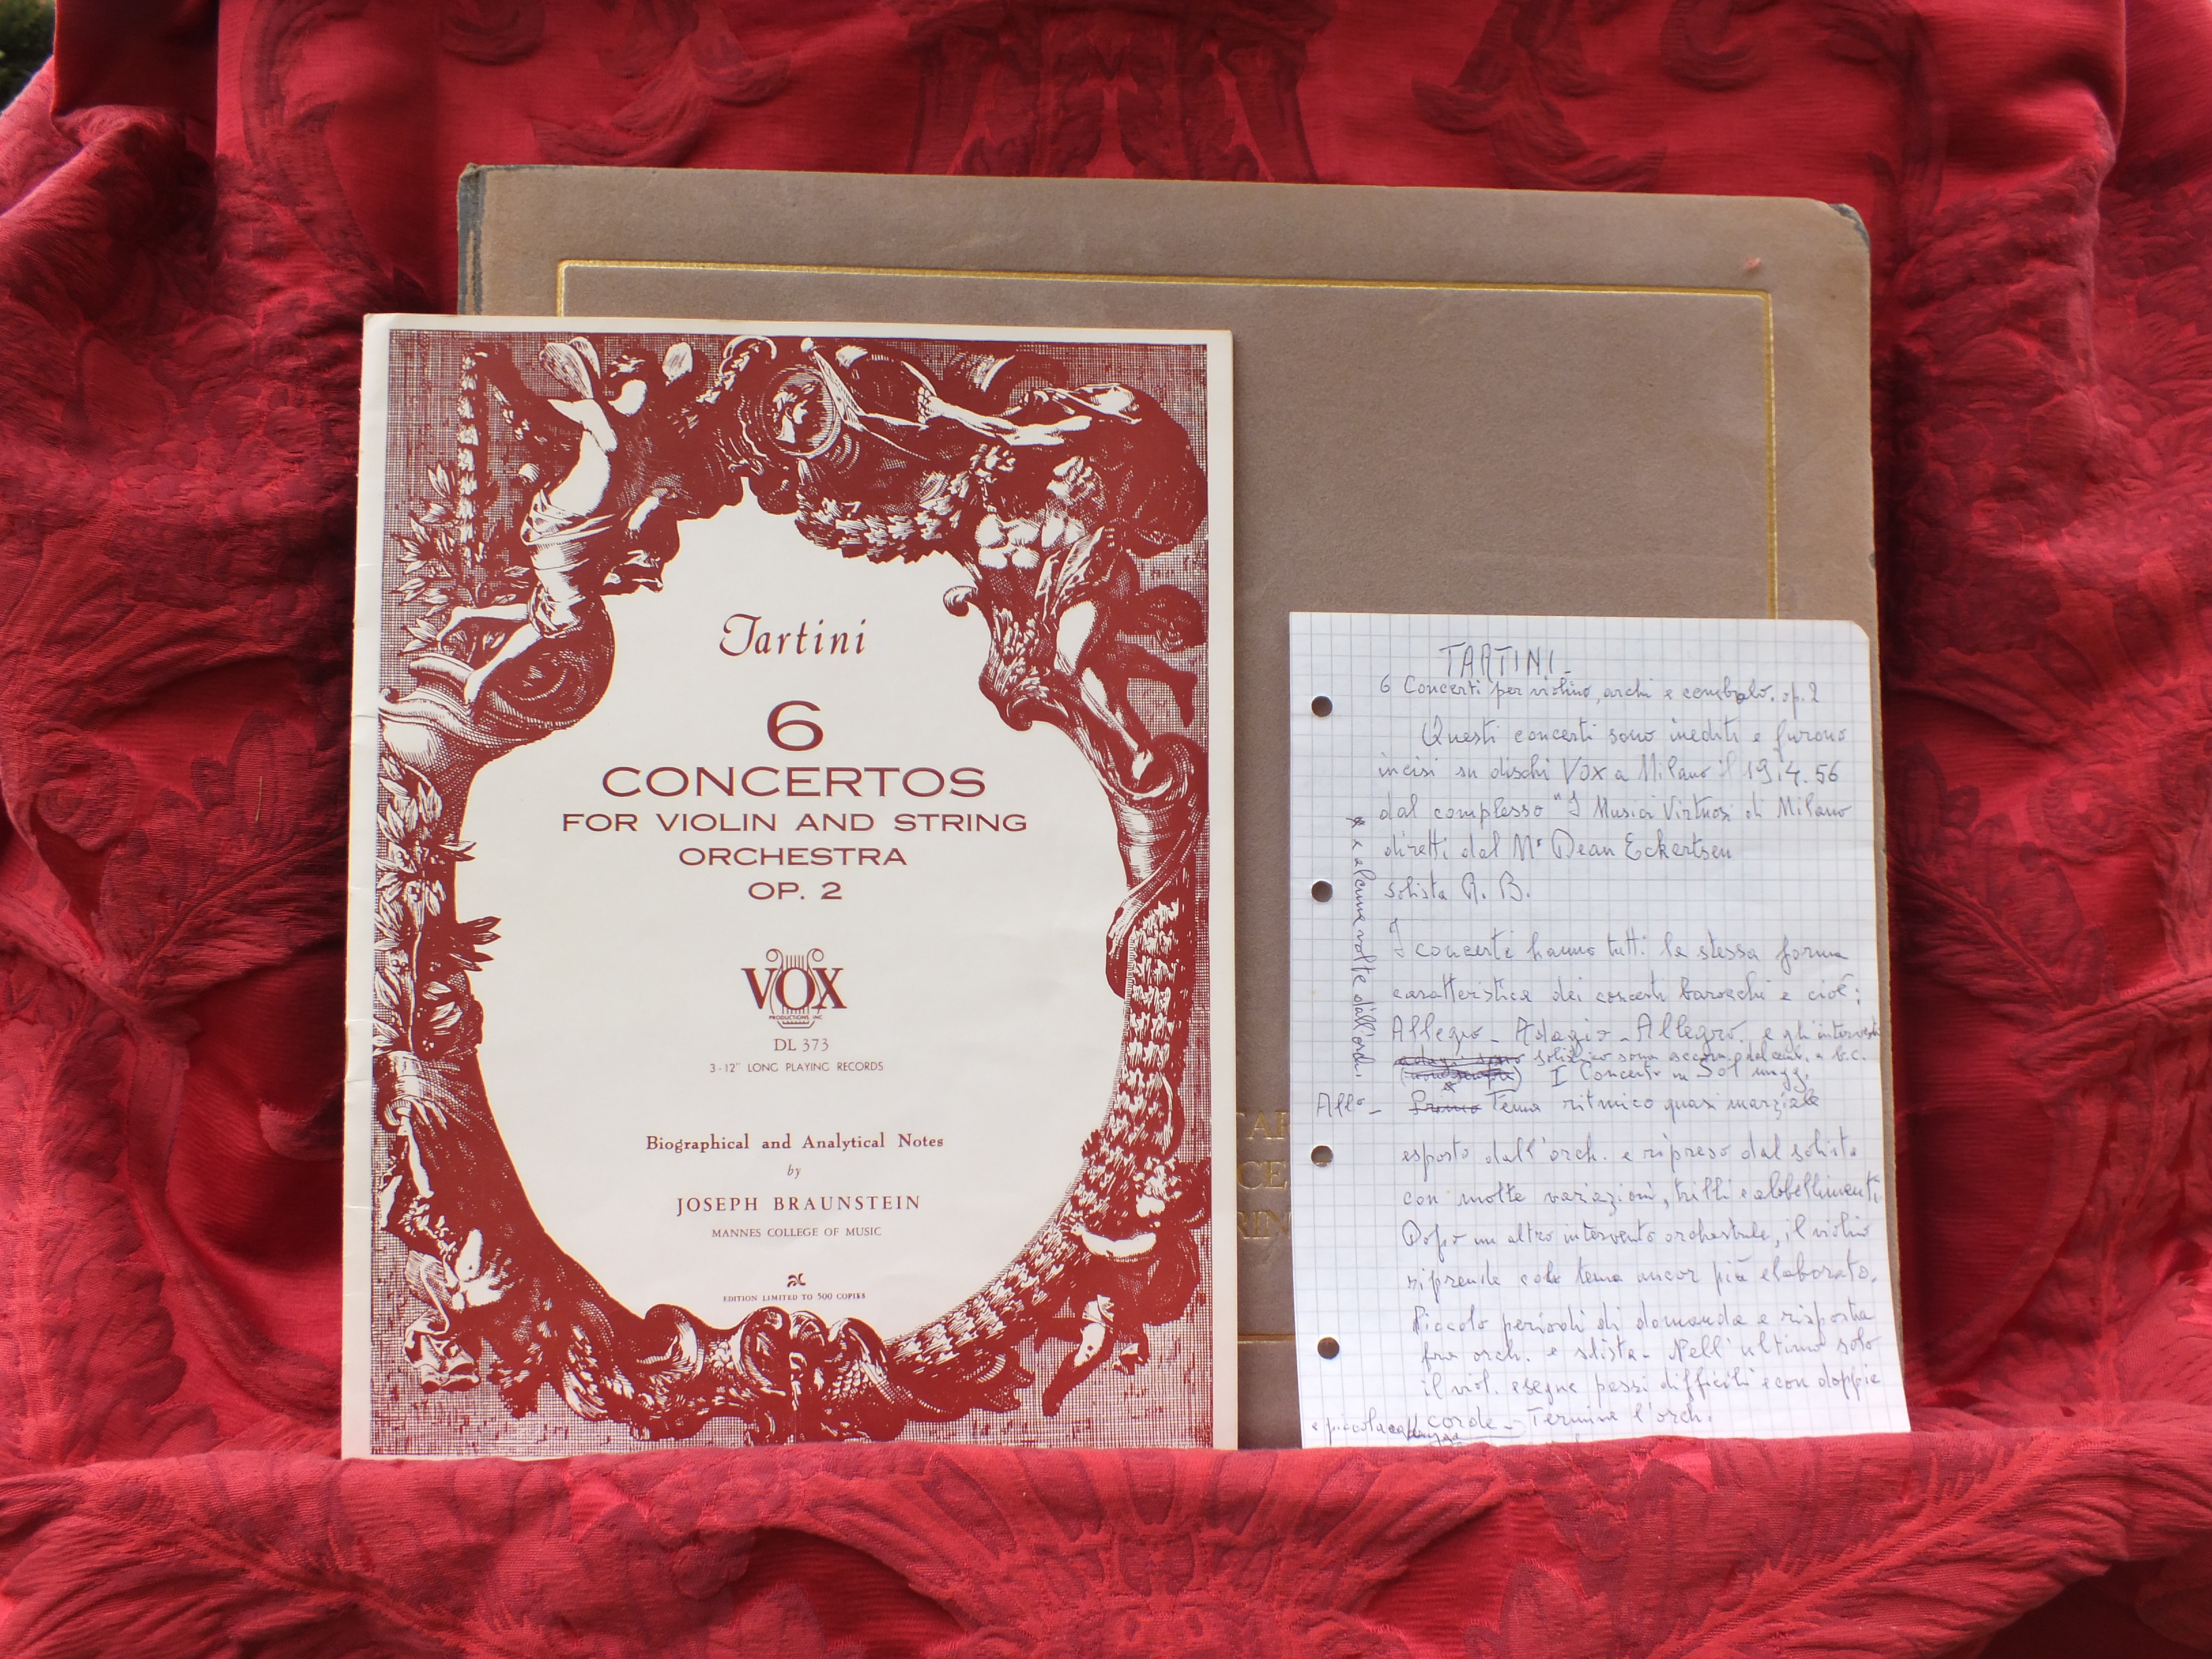 Tartini
6
CONCERTOS
FOR VIOLIN AND STRING
ORCHESTRA
OP. 2
VOX
PRODUCTIONS INC
DL 373
3-12" LONG PLAYING RECORDS
Biographical and Analytical Notes
by
JOSEPH BRAUNSTEIN
MANNES COLLEGE OF MUSIC
EDITION LIMITED TO 500 COPIES
TARTINI_
6 Concerti per violino, archi e cembalo. op. 2
Questi concerti sono inediti e furono
incisi su dischi VOX a Milano il 19.4.56
dal complesso "I Musici Virtuosi di Milano
diretti dal M° Dean Eckertsen
solista R. B.
I concerti hanno tutti la stessa forma
caratteristica dei concerti barocchi e cioè:
Allegro - Adagio - Allegro. e gli interventi
sono accomp. dal cemb. e b.c.
I Concerto in Sol magg.
All° - Primo Tema ritmico quasi marziale
esposto dall'orch. e ripreso dal solista
con molte variazioni, trilli e abbellimenti.
Dopo un altro intervento orchestrale, il violino
riprende col tema ancor più elaborato.
Piccolo periodi di domanda e risposta
fra orch. e solista - Nell'ultimo solo
il viol. esegue passi difficili e con doppie
corde - Termina l'orch.
e piccola cadenza
e alcune volte dall'orch.